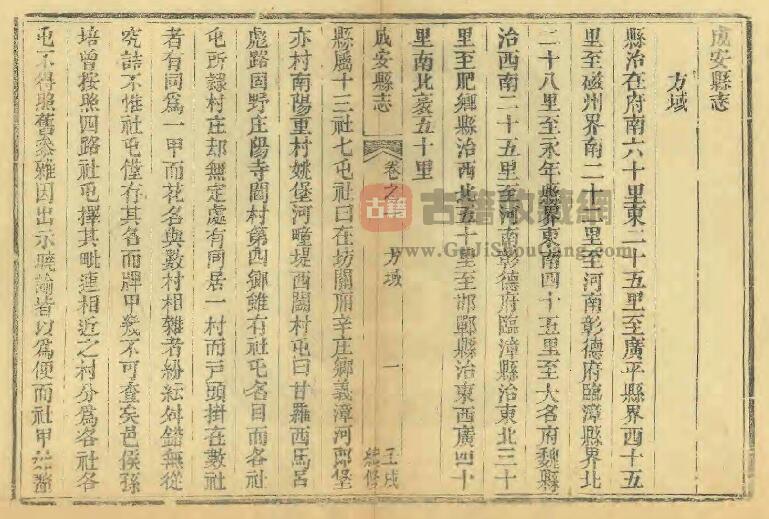 成安縣志
方域
縣治在府南六十里東二十五里至廣平縣界西十五
里至磁州界南二十里至河南彰德府臨漳縣界北
二十八里至永年縣界東南四十五里至大名府魏縣
治西南二十五里至河南彰德府臨漳縣治東北三十
里至肥鄉縣治西北五十里至邯鄲縣治東西廣四十
里南北袤五十里
成安縣志 卷之 方域 一 壬戌 續修
縣屬十三社七屯社曰在坊關廂辛庄鄉義漳河郎堡
亦村南陽重村姚堡河疃堤西閻村屯曰甘羅西馬呂
彪路固野庄陽寺閻村第四鄉雖有社屯名目而各社
屯所隸村庄却無定處有同居一村而戸頭掛在數社
者有同爲一甲而花名與數村相雜者紛紜舛錯無從
究詰不惟社屯僅存其名而牌甲幾不可查矣邑侯孫
培曾按照四路社屯擇其毗連相近之村分爲各社各
屯不得照舊參雜因出示曉諭皆以爲便而社甲
古籍 古籍收藏網
www.GuJiShouCang.com